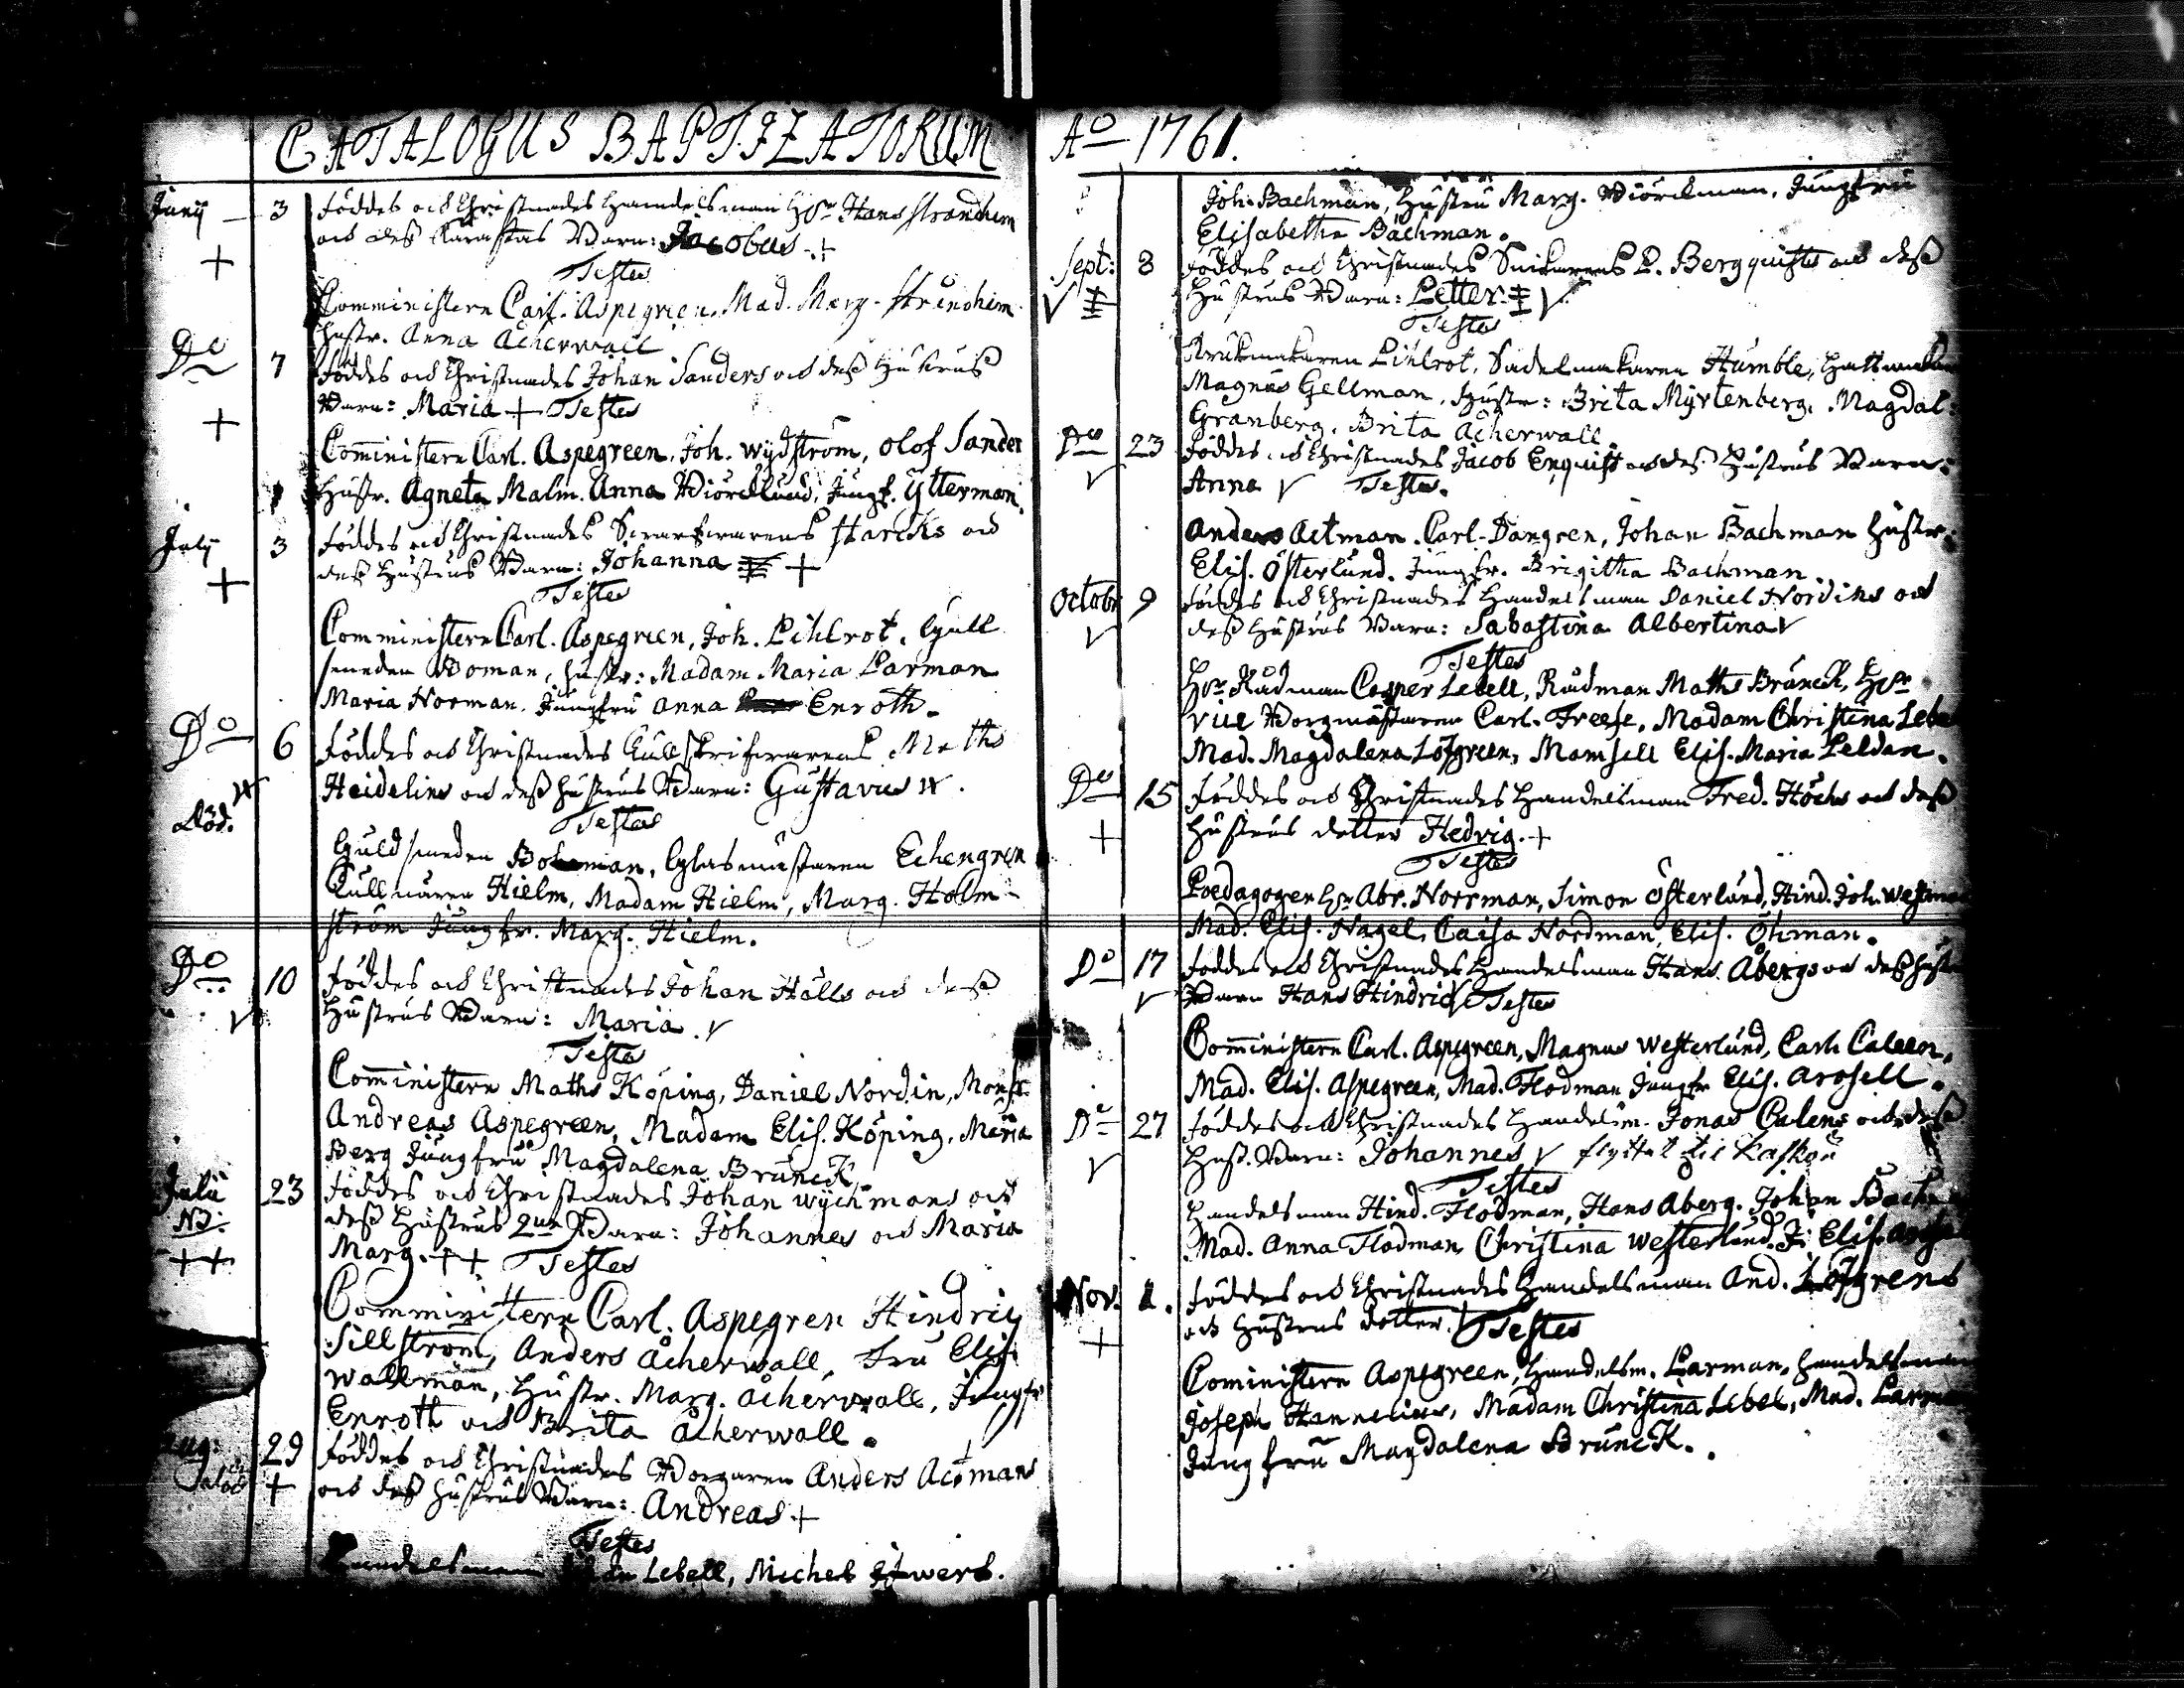 CATALOGUS BAPTIZATORUM
Junij 3 Föddes och Christnades Handelsman Hr Hans Strandhem
och dess Kärastas Barn: Jacobus +
+
Testes
Comministern Carl. Aspegrren, Mad. Marg. Strandhem
hustr. Anna Åcherwall
Do 7 Föddes och Christnades Johan Sanders och dess Hustrus
Barn: Maria + Testes
+
Comministern Carl. Aspegreen, Joh. Wydström, Olof Sander
Hustr. Agneta Malm. Anna Biörcklund, Jungf. Ytterman.
July 3 Föddes och Christnades Starcks och
dess Hustrus Barn: Johanna +
+
Testes
Comministern Carl. Aspegreen, Joh. Pihlrot, Gull
smeden Boman, hustr: Madam Maria Parman
Maria Norman. Jungfru Anna Enroth.
Do 6 Föddes och Christnades Tullskrifwarens Maths
Heidelins och dess hustrus Barn: Gustavus
Död.
Testes
Guldsmeden Boman, Glasmästaren Echengren
Hielm, Madam Hielm, Marg. Holm-
ström Jungfr. Marg. Hielm.
Do 10 Föddes och Christnades Johan Hälls och dess
Hustrus Barn: Maria. V
V
Testes
Comministern Maths Köping, Daniel Nordin, Monsr
Andreas Aspegreen, Madam Elis. Köping, Maria
Berg Jungfru Magdalena Brunck
Julii 23 Föddes och Christnades Johan Wychmans och
dess Hustrus 2ne Barn: Johannes och Maria
NB.
Marg. ++ Testes
++
Comministern Carl. Aspegren Hindric
Sillström, Anders Åcherwall, Fru Elis.
Wallman, Hustr. Marg. Åcherwall, Jungfr
Enroth och Brita Åcherwall.
29 Föddes och Christnades Borgaren Anders Actmans
+ och dess Hustrus Barn: Andreas +
Testes
Handelsman Lebell, Michel
Ao 1761.
Joh. Bachman, Hustru Marg. Biörckman, Jungfru
Elisabetha Bachman.
Sept: 8 Föddes och Christnades Snikarens P. Bergquists och dess
Hustrus Barn: Petter V
V
Testes
Krukmakaren Pihlrot, Sadelmakaren Humble, Hattmakaren
Magnus Gellman, Hustr: Brita Myrtenberg, Magdal:
Granberg, Brita Åcherwall.
Do 23 Föddes och Christnades Jacob Enquist och dess Hustrus Barn:
V Anna V Testes.
Anders Actman. Carl Dangren, Johan Bachman Hustr:
Elis. Österlund. Jungfr. Brigitha Bachman
Octobr 9 Föddes och Christnades Handelsman Daniel Nordins och
dess Hustrus Barn: Sabastina Albertina V
V
Testes
Hr Rådman Casper Lebell, Rådman Maths Brunck, Hr
vice Borgmästaren Carl. Freese, Madam Christina Lebe
Mad. Magdalena Löfgreen, Mamsell Elis. Maria Peldan.
Do 15 Föddes och Christnades Handelsman Fred. Höchs och dess
Hustrus dotter Hedvig. +
+
Testes
Poedagogen Hr Abr. Norrman, Simon Österlund, Hind. Joh. Westman
Mad. Elis. Nagel, Caisa Nordman, Elis. Öhman.
Do 17 Föddes och Christnades Handelsman Hans Åbergs och dess hustr
V Barn Hans Hindric V Testes
Comministern Carl. Aspegreen, Magnus Westerlund, Carl Caleen,
Mad. Elis. Aspegreen, Mad. Flodman Jungfr Elis. Arosell.
Do 27 Föddes och Christnades Handelsm. Jonas Calens och dess
Hust. Barn: Johannes V flyttat til Kaskö
V
Testes
Handelsman Hind. Flodman, Hans Åberg. Johan Bachm
Mad. Anna Flodman, Christina Westerlund, J. Elis. Arosel
Nov. 2. Föddes och Christnades Handelsman And. Löfgrens
och Hustrus dotter. Testes
+
Cominstern Aspegreen, Handelsm. Parman, Handelsman
Joseph Hannelius, Madam Christina Lebel, Mad. Parman
Jungfru Magdalena Brunck.